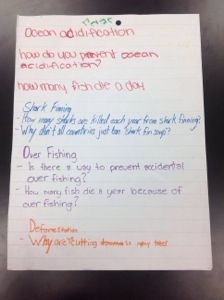 Ocean acidification
how do you prevent ocean
acidification?
how many fish die a day
Shark Finning
- How many sharks are killed each year from shark finning?
- Why don't all countries just ban shark fin soup?
Over Fishing
- Is there a way to prevent accidental
over fishing?
- How many fish die a year because of
over fishing?
Deforestation
- Why are cutting down so many trees